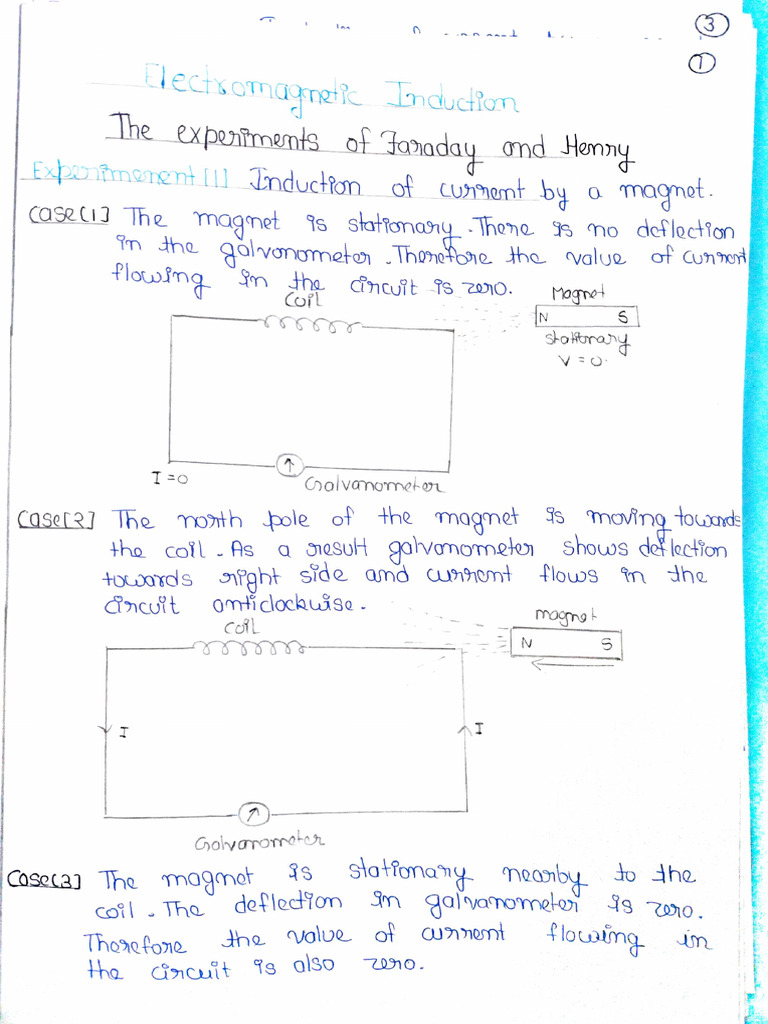 3
1
Electromagnetic Induction
The experiments of Faraday and Henry
Experimenent [1] Induction of current by a magnet.
Case[1] The magnet is stationary. There is no deflection
in the galvonometer. Therefore the value of current
flowing in the circuit is zero.
Coil
Magnet
N S
stationary
V = 0.
I = 0
Galvanometer
Case[2] The north pole of the magnet is moving towards
the coil. As a result galvonometer shows deflection
towards right side and current flows in the
circuit anticlockwise.
Coil
magnet
N S
I
I
Galvanometer
Case[3] The magnet is stationary nearby to the
coil. The deflection in galvanometer is zero.
Therefore the value of current flowing in
the circuit is also zero.